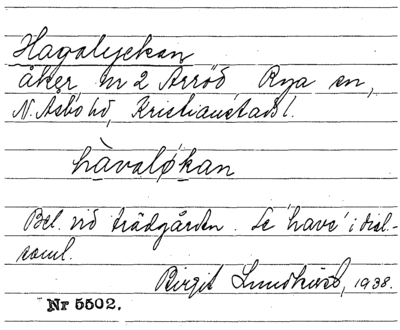 Hagalyckan
åker nr 2 Arröd Rya sn,
N. Åsbo hd, Kristianstads l.
hàvaløkan
Bel. vid trädgården. Se 'have' i dial.-
saml.
Birgit 1938.
Nr 5502.